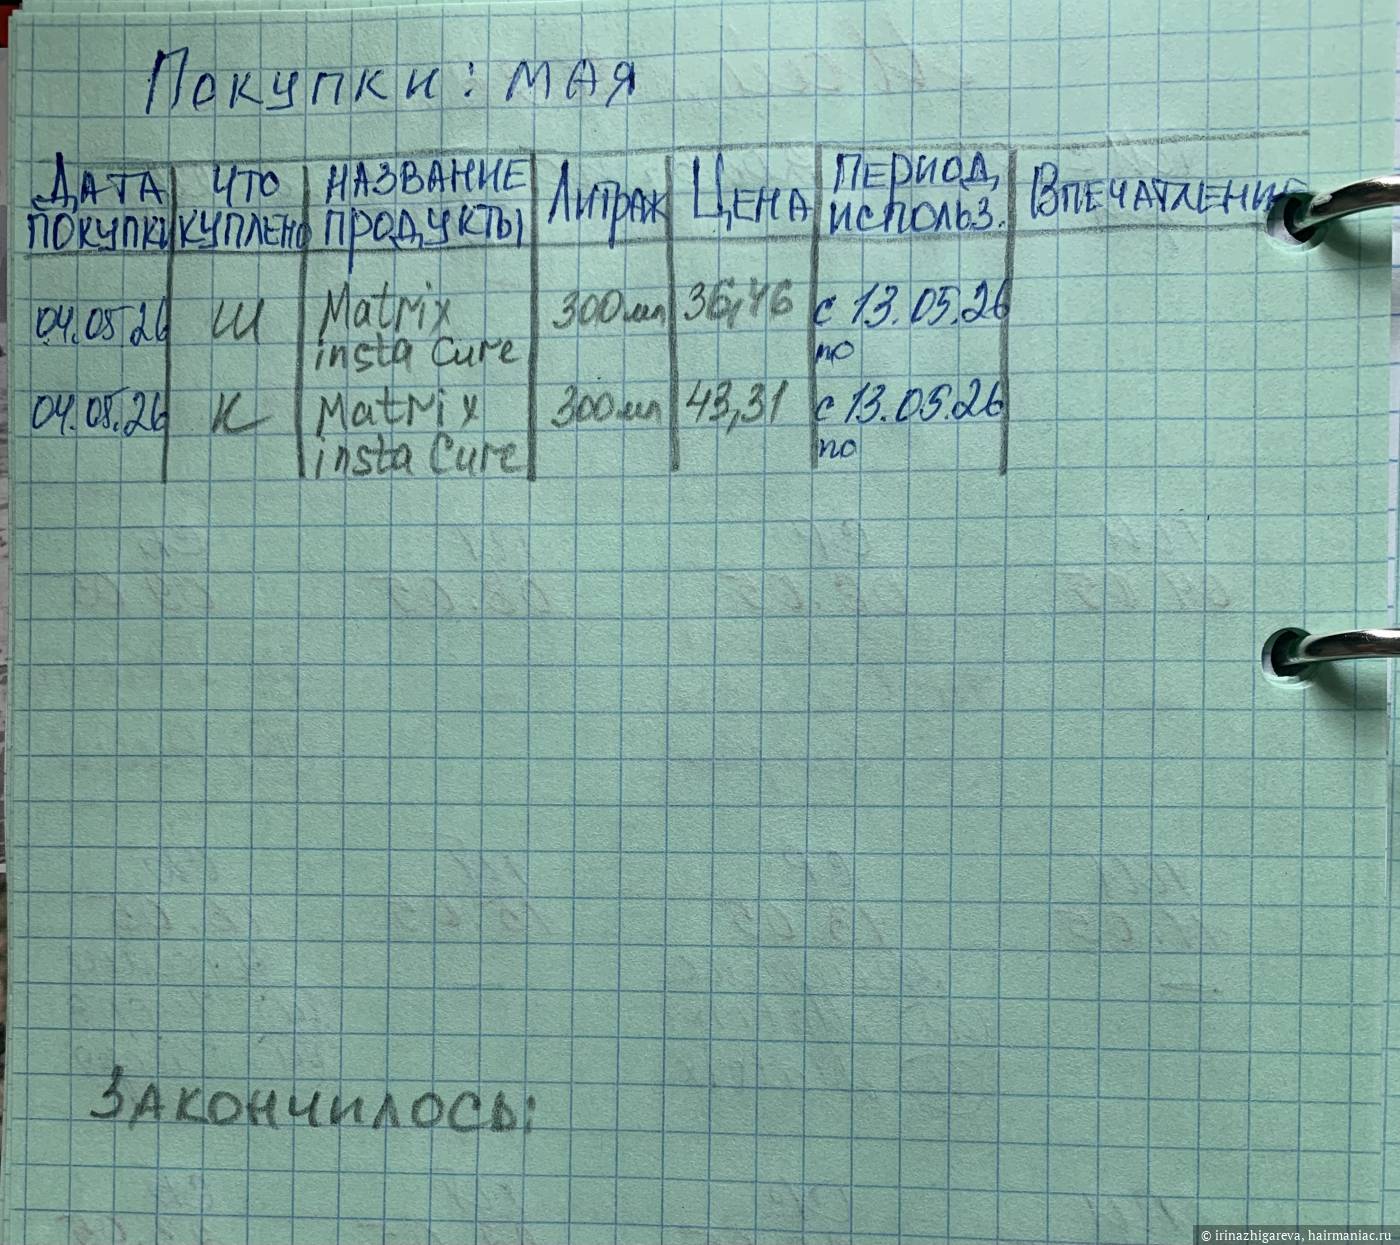 Покупки: мая
Дата покупки | что куплено | название продукты | Литраж | Цена | период использ. | Впечатление
04.05.26 | Ш | Matrix insta Cure | 300мл | 36,46 | с 13.05.26 по
04.05.26 | К | Matrix insta Cure | 300мл | 43,31 | с 13.05.26 по
Закончилось:
© irinazhigareva, hairmaniac.ru